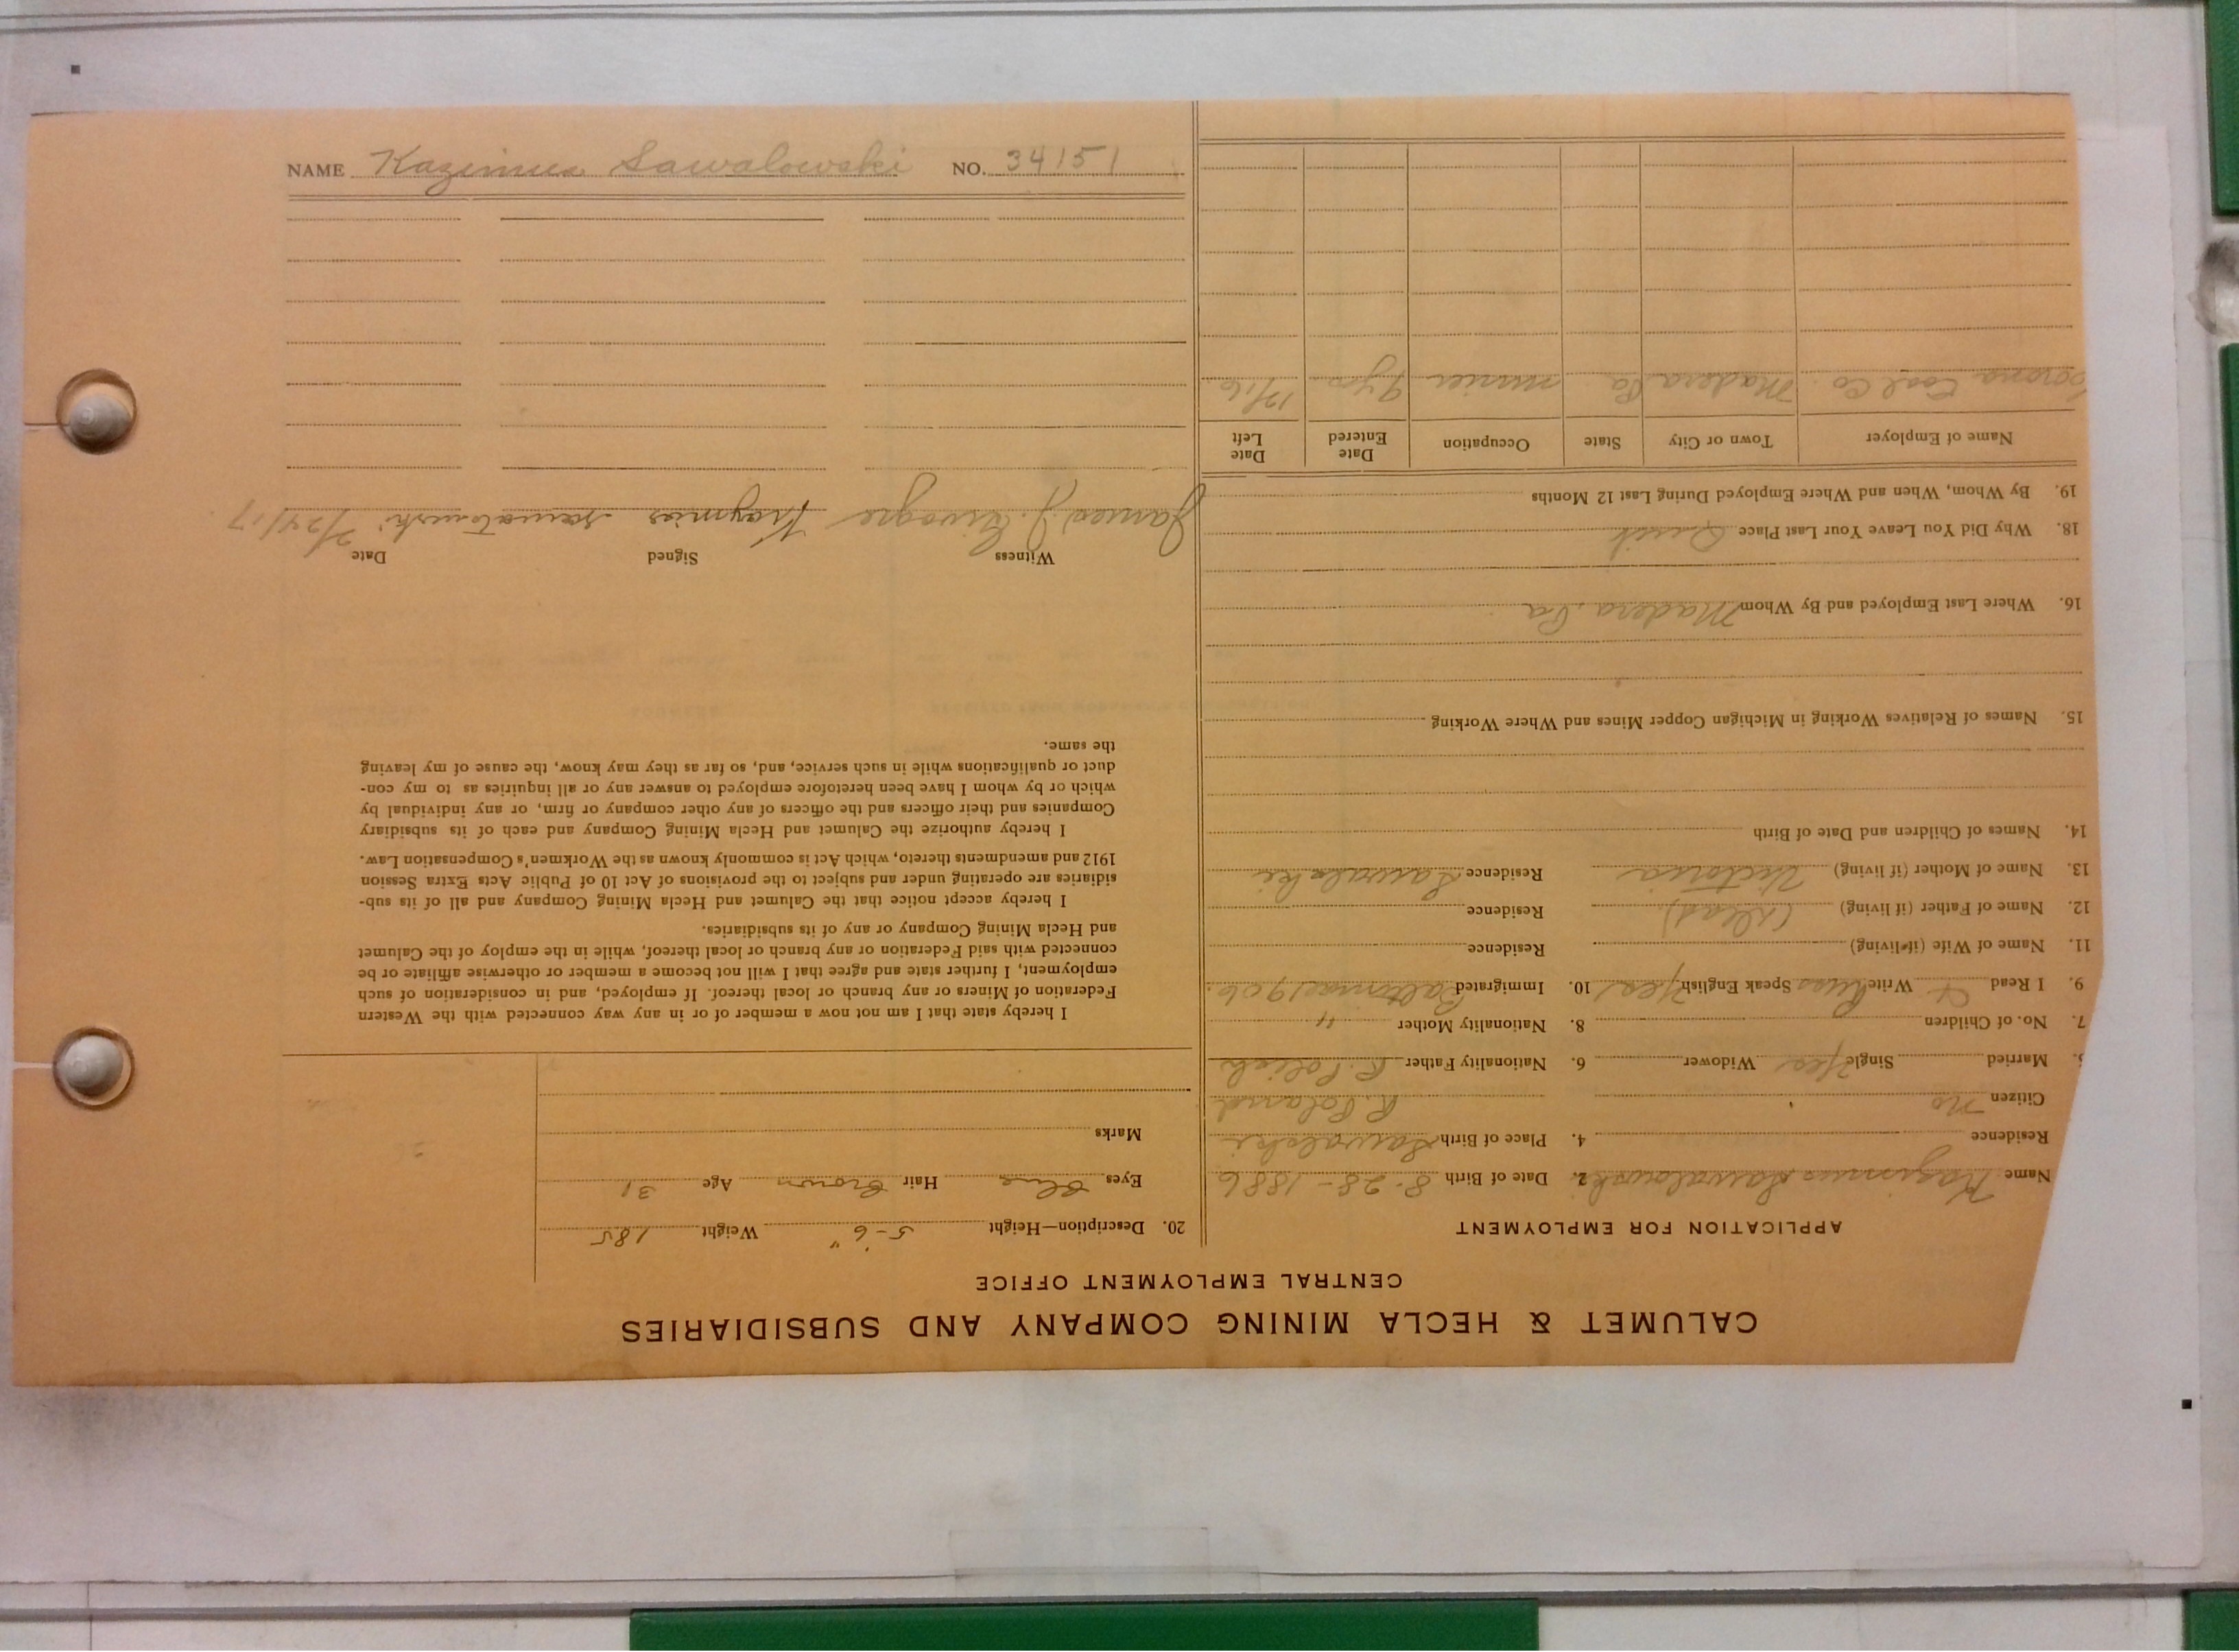 NAME Kazimus Sawalowski NO. 34151
CALUMET & HECLA MINING COMPANY AND SUBSIDIARIES
CENTRAL EMPLOYMENT OFFICE
APPLICATION FOR EMPLOYMENT
Name Kazimus Sawalowski 2. Date of Birth 8-28-1886
Residence 4. Place of Birth Sawalski
Citizen no R. Poland
Married Single Yes Widower 6. Nationality Father R. Polish
7. No. of Children 8. Nationality Mother "
9. I Read Write Russ Speak English Yes 10. Immigrated Baltimore 1906.
11. Name of Wife (if living) Residence
12. Name of Father (if living) (dead) Residence
13. Name of Mother (if living) Victoria Residence Sawalski
14. Names of Children and Date of Birth
15. Names of Relatives Working in Michigan Copper Mines and Where Working
16. Where Last Employed and By Whom Madera, Pa
18. Why Did You Leave Your Last Place Quit
19. By Whom, When and Where Employed During Last 12 Months
Name of Employer Town or City State Occupation Date Entered Date Left
Coal Co. Madera Pa miner 9 yrs 12/16
20. Description—Height 5-6" Weight 185
Eyes Blue Hair Brown Age 31
Marks
I hereby state that I am not now a member of or in any way connected with the Western
Federation of Miners or any branch or local thereof. If employed, and in consideration of such
employment, I further state and agree that I will not become a member or otherwise affiliate or be
connected with said Federation or any branch or local thereof, while in the employ of the Calumet
and Hecla Mining Company or any of its subsidiaries.
I hereby accept notice that the Calumet and Hecla Mining Company and all of its sub-
sidiaries are operating under and subject to the provisions of Act 10 of Public Acts Extra Session
1912 and amendments thereto, which Act is commonly known as the Workmen's Compensation Law.
I hereby authorize the Calumet and Hecla Mining Company and each of its subsidiary
Companies and their officers and the officers of any other company or firm, or any individual by
which or by whom I have been heretofore employed to answer any or all inquiries as to my con-
duct or qualifications while in such service, and, so far as they may know, the cause of my leaving
the same.
Witness Signed Date
James J. Kazmias Sawalowski 2/24/17